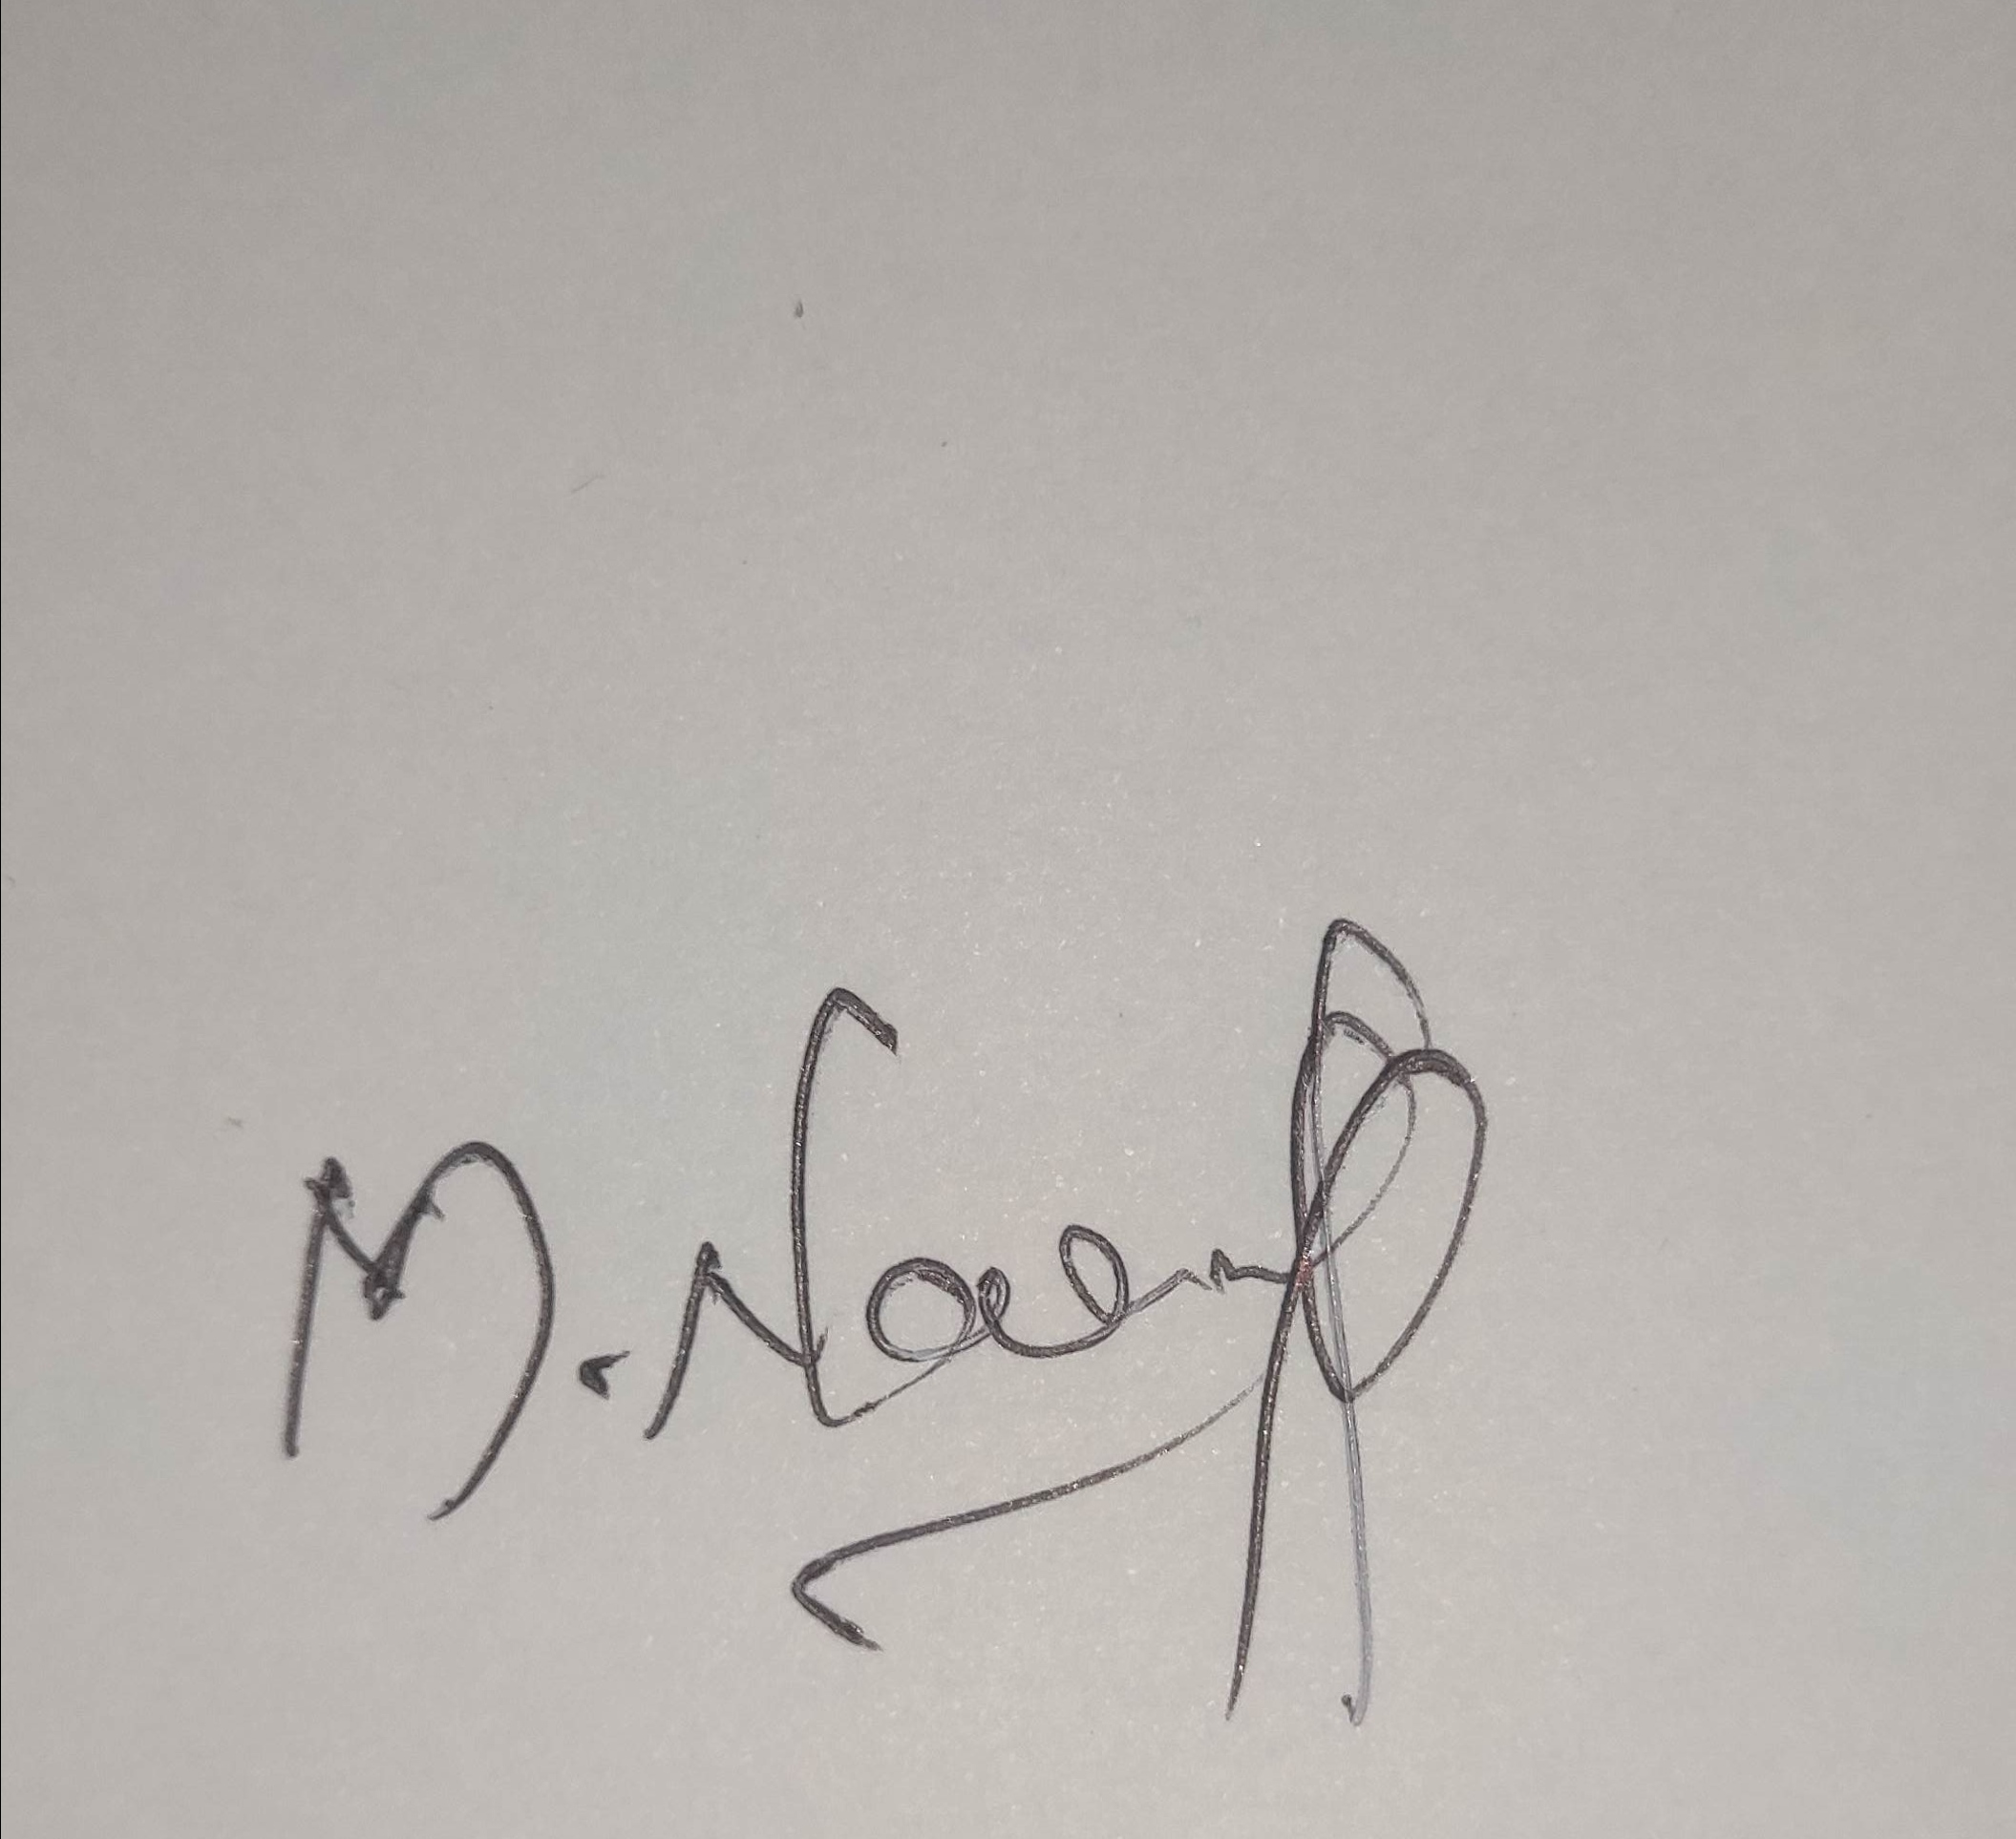 M. Naeem